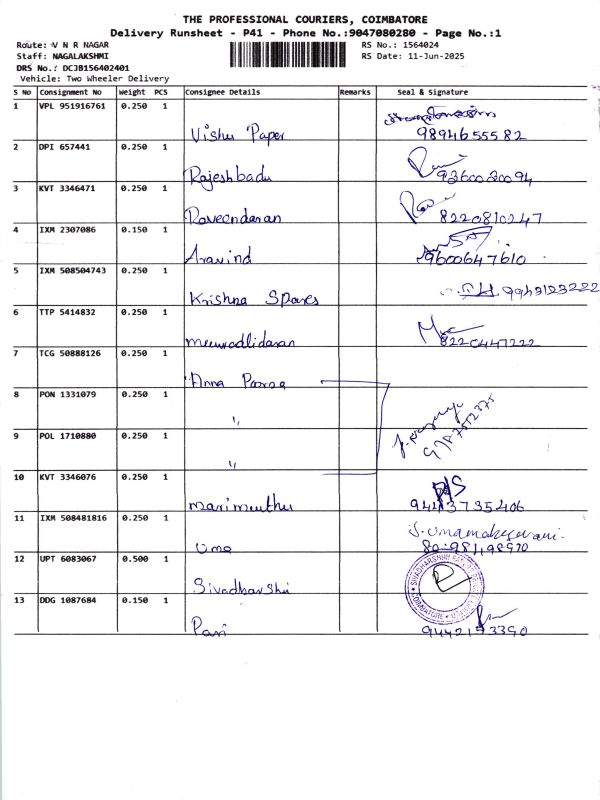 THE PROFESSIONAL COURIERS, COIMBATORE
Delivery Runsheet - P41 - Phone No.:9047080280 - Page No.:1
Route: V N R NAGAR RS No.: 1564024
Staff: NAGALAKSHMI RS Date: 11-Jun-2025
DRS No.: DCJB156402401
Vehicle: Two Wheeler Delivery
S No Consignment No Weight PCS Consignee Details Remarks Seal & Signature
1 VPL 951916761 0.250 1
Vishu Paper 9894655582
2 DPI 657441 0.250 1
Rajeshbabu 9360030094
3 KVT 3346471 0.250 1
Raveendaran 8220810247
4 IXM 2307086 0.150 1
Aravind 9600647610
5 IXM 508504743 0.250 1
Krishna Spares 9943123222
6 TTP 5414832 0.250 1
8220447222
7 TCG 50888126 0.250 1
Anna
8 PON 1331079 0.250 1
"
9 POL 1710880 0.250 1
"
10 KVT 3346076 0.250 1
Marimuthu 9443735406
11 IXM 508481816 0.250 1
Uma S. Umamaheswari.
12 UPT 6083067 0.500 1
Sivadharshini
13 DDG 1087684 0.150 1
Pari 9442153390